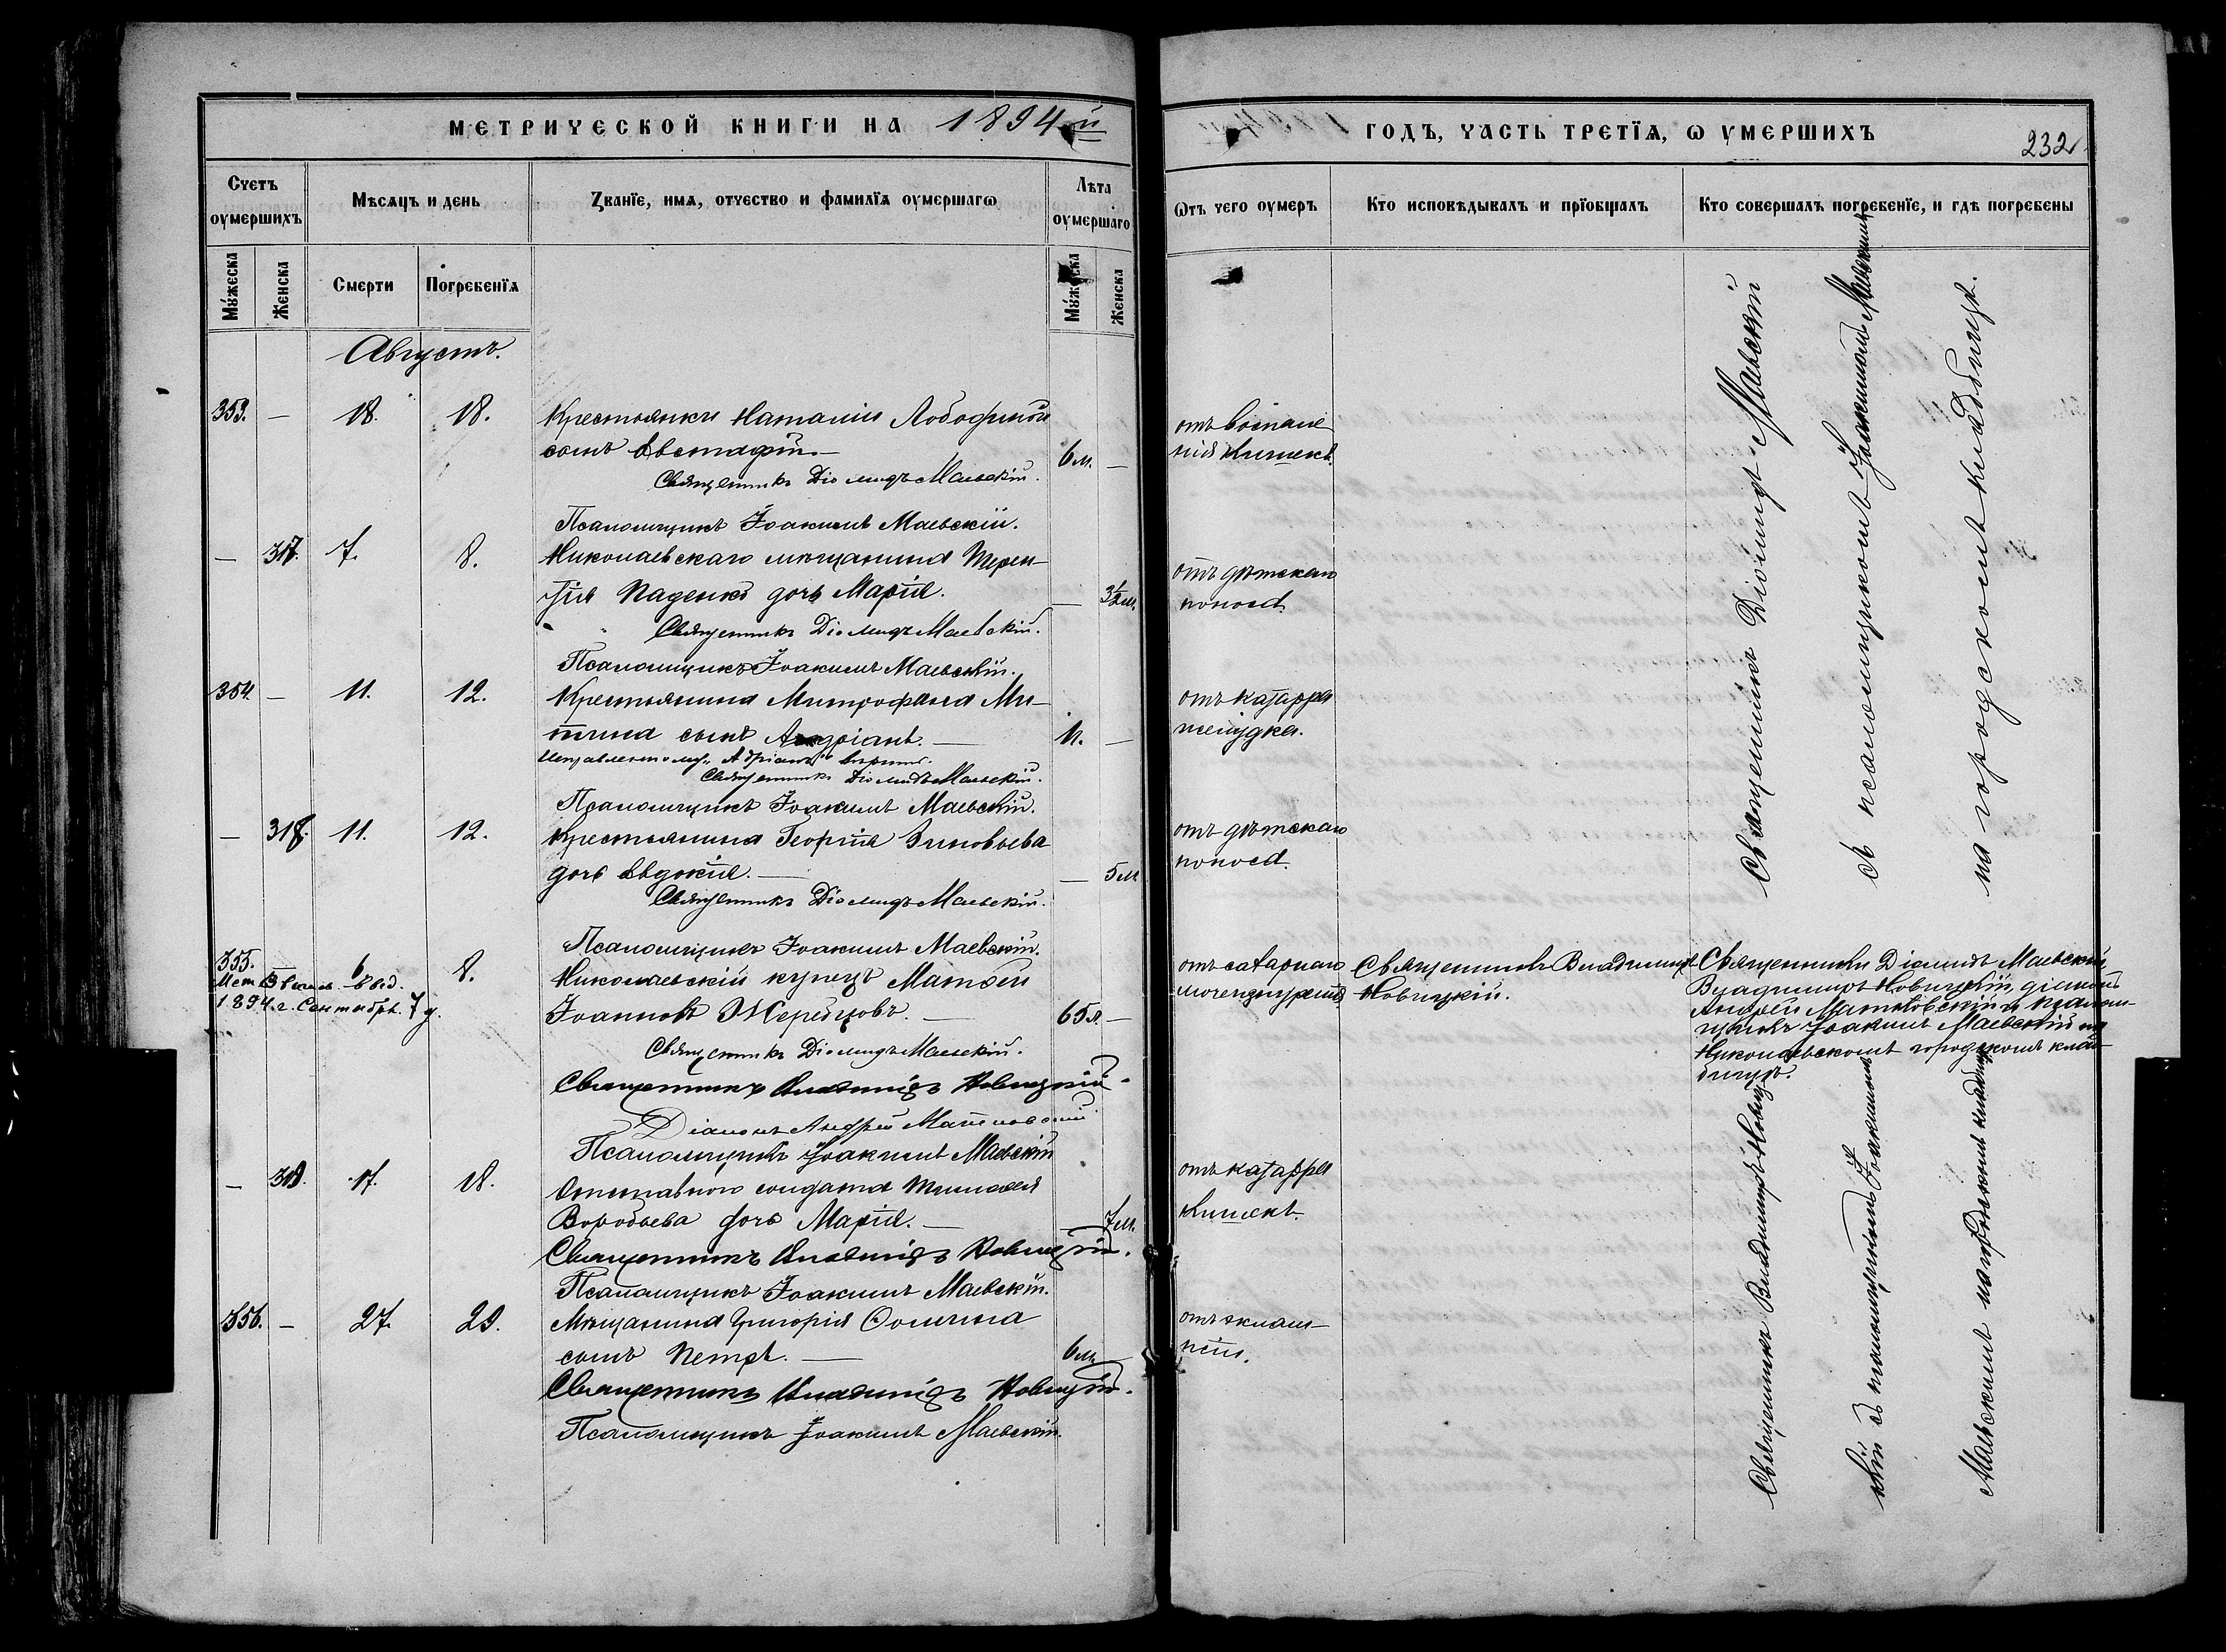 МЕТРИЧЕСКОЙ КНИГИ НА 1894й
ГОДЪ, ЧАСТЬ ТРЕТІЯ, Ѡ УМЕРШИХЪ
232
Счетъ оумершихъ
Мѣсяцъ и день
Званїе, имя, отчество и фамилїя оумершагѡ
Лѣта оумершаго
Ѡтъ чего оумеръ
Кто исповѣдывалъ и прїобщалъ
Кто совершалъ погребенїе, и гдѣ погребены
Мужеска
Женска
Смерти
Погребенїя
Мужеска
Женска
Августъ.
353. — 18. 18. Крестьянки Наталіи
сынъ Евстафій. — 6 м. —
отъ воспале
нія кишекъ.
Священникъ Діомидъ Маевскій.
Псаломщикъ Іоакимъ Маевскій.
— 317. 7. 8. Николаевскаго мѣщанина Терен-
тія Паденко дочь Марія. — 3½ м.
отъ дѣтскаго
поноса.
Священникъ Діомидъ Маевскій.
Псаломщикъ Іоакимъ Маевскій.
354. — 11. 12. Крестьянина Митрофана Ми-
тина сынъ Адріанъ. — —
отъ катарра
желудка.
Исправленному "Адріанъ" вѣрить.
Священникъ Діомидъ Маевскій.
Псаломщикъ Іоакимъ Маевскій.
— 318. 11. 12. Крестьянина Георгія Зиновьева
дочь Евдокія. — — 5 м.
отъ дѣтскаго
поноса.
Священникъ Діомидъ Маевскій.
Псаломщикъ Іоакимъ Маевскій.
355. — 6 8. Николаевскій купецъ Матѳей
Іоанновъ Жеребцовъ. — 65 л. —
1894 г. Сентября 7 д.
отъ сахарнаго
мочеизнуренія
Священникъ Владимиръ
Новицкій.
Священники Діомидъ Маевскій,
Владимиръ Новицкій, діаконъ
Андрей и псалом-
щикъ Іоакимъ Маевскій на
Николаевскомъ городскомъ клад-
бищѣ.
Священникъ Діомидъ Маевскій.
Священникъ Владимиръ Новицкій.
Діаконъ Андрей
Псаломщикъ Іоакимъ Маевскій
— 319. 17. 18. Отставного солдата Тимоѳея
Воробьева дочь Марія. — — 7 м.
отъ катарра
кишекъ.
Священникъ Владимиръ Новицкій.
Псаломщикъ Іоакимъ Маевскій.
356. — 27. 29. Мѣщанина Григорія Ѳомина
сынъ Петръ. — 6 м. —
отъ эклам-
псіи.
Священникъ Владимиръ Новицкій.
Псаломщикъ Іоакимъ Маевскій.
Священникъ Діомидъ Маевскій
съ псаломщикомъ Іоакимомъ Маевскимъ
на городскомъ кладбищѣ.
Священникъ Владимиръ Новиц-
кій съ псаломщикомъ Іоакимомъ
Маевскимъ на городскомъ кладбищѣ